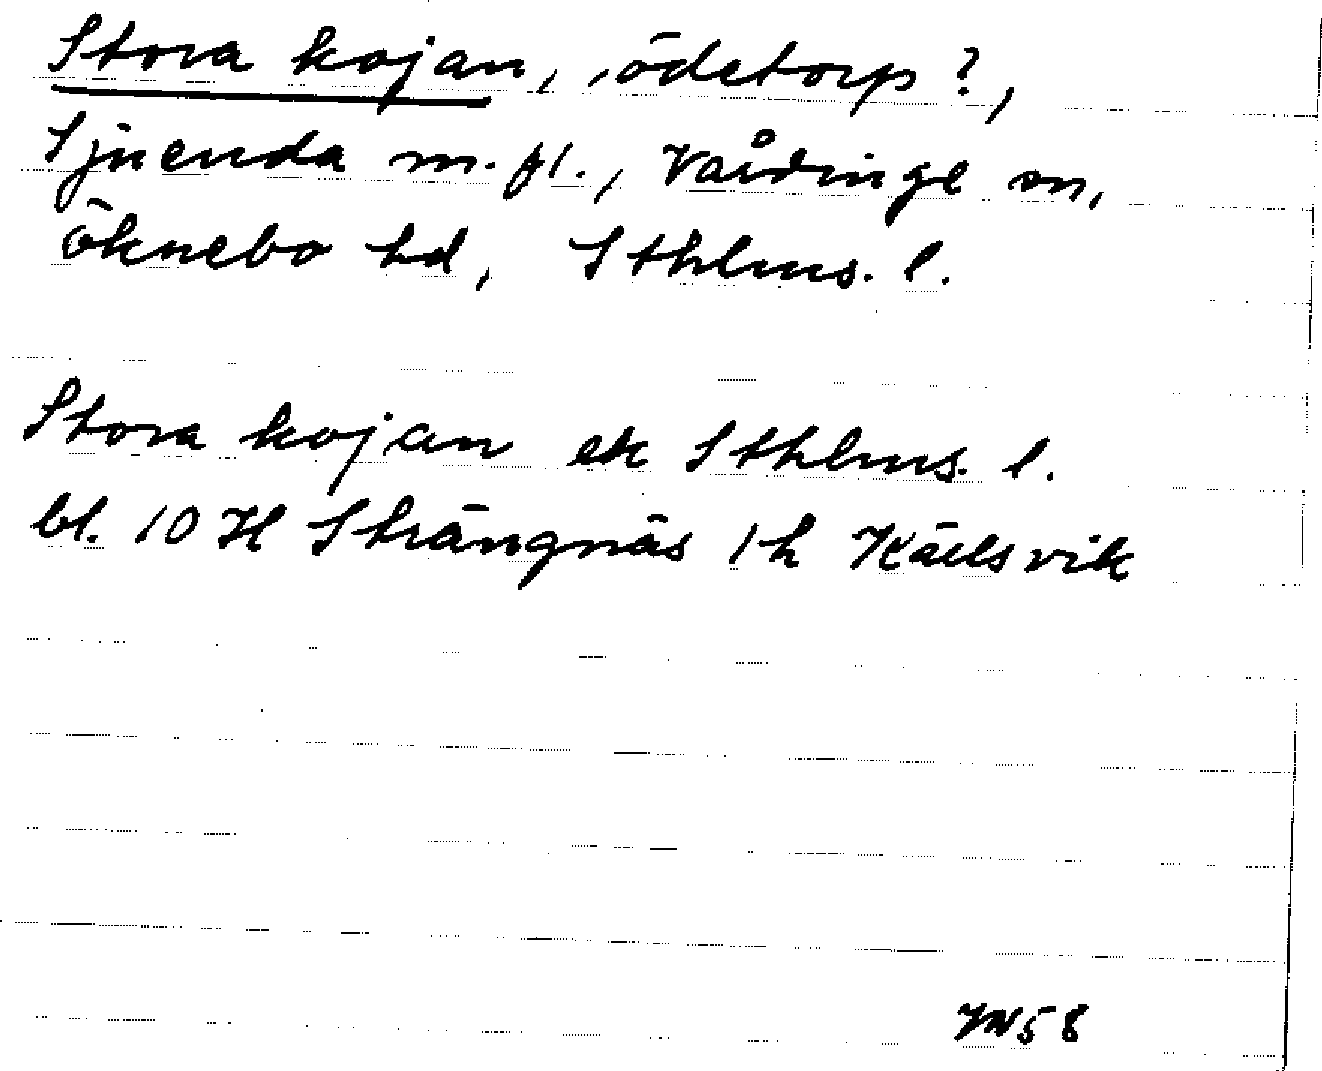 Stora kojan, ödetorp?,
Sjuenda m.fl., Vårdinge sn,
Öknebo hd, Sthlms. l.
Stora kojan ek Sthlms. l.
bl. 10 H Strängnäs 1 h Källsvik